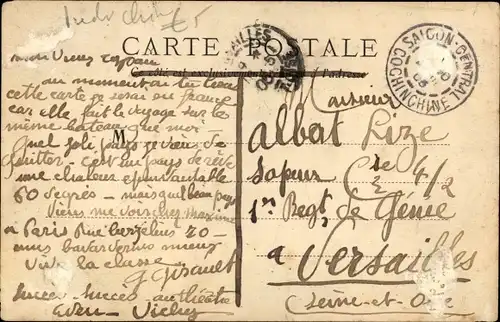 Indo Chine £5
CARTE POSTALE
Ce côté est exclusivement réservé à l'adresse
VERSAILLES
SAIGON-CENTRAL
COCHINCHINE
Mon vieux copain
au moment où tu liras
cette carte je serai en france
car elle fait le voyage sur le
même bateau que moi
Quel joli pays je viens de
quitter - c'est un pays de rêve
une chaleur épouvantable
60 degrés - mais quel beau pays
Viens me voir chez
à Paris Rue 20 -
nous bavarderons mieux
Vive la classe
Succès - Succès au théâtre
Vichy
M
Monsieur
Albert Lize
Sapeur Cie 4/2
1er Regt de Génie
à Versailles
(Seine-et-Oise